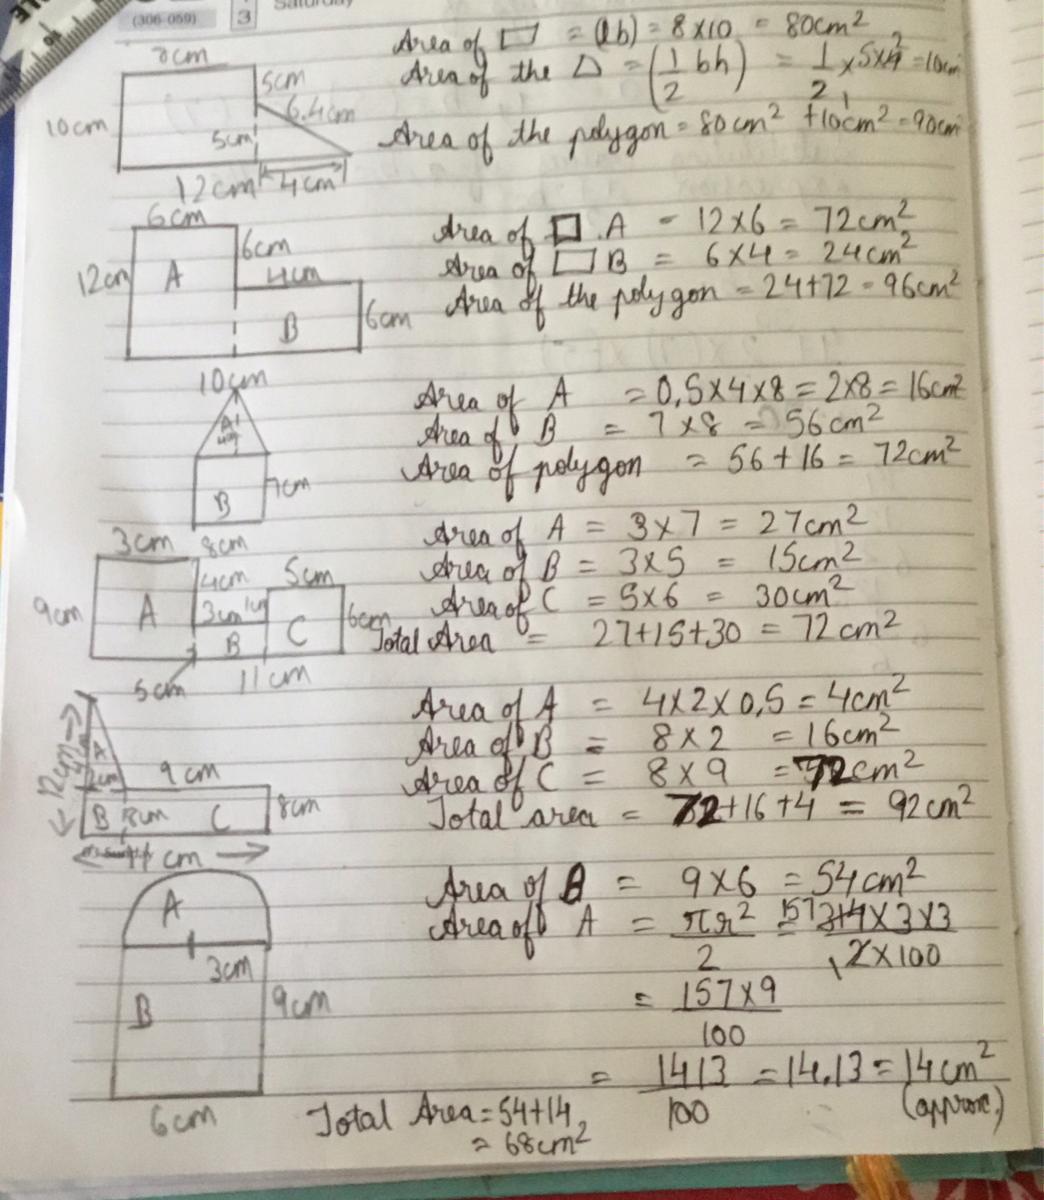 Saturday
(306-059)
3
8cm
10cm
5cm
6.4cm
5cm
12cm
4cm
Area of ▭ = (lb) = 8×10 = 80cm²
Area of the Δ = (1/2 bh) = 1/2 × 5×4 = 10cm
Area of the polygon = 80cm² + 10cm² = 90cm
6cm
12cm
A
6cm
4cm
B
6cm
10cm
Area of □ A = 12×6 = 72cm²
Area of ▭ B = 6×4 = 24cm²
Area of the polygon = 24+72 = 96cm²
A
B
7cm
8cm
Area of A = 0.5×4×8 = 2×8 = 16cm²
Area of B = 7×8 = 56cm²
Area of polygon = 56+16 = 72cm²
3cm
9cm
A
4cm
3cm
B
5cm
C
6cm
5cm
11cm
Area of A = 3×7 = 27cm²
Area of B = 3×5 = 15cm²
Area of C = 5×6 = 30cm²
Total Area = 27+15+30 = 72cm²
12cm
A
2cm
9cm
B
8cm
C
8cm
11 cm
Area of A = 4×2×0.5 = 4cm²
Area of B = 8×2 = 16cm²
Area of C = 8×9 = 72cm²
Total area = 72+16+4 = 92cm²
A
3cm
B
9cm
6cm
Area of B = 9×6 = 54cm²
Area of A = πr²/2 = 157 314×3×3/2×100
= 157×9/100
= 1413/100 = 14.13 = 14cm²
(approx.)
Total Area = 54+14
= 68cm²